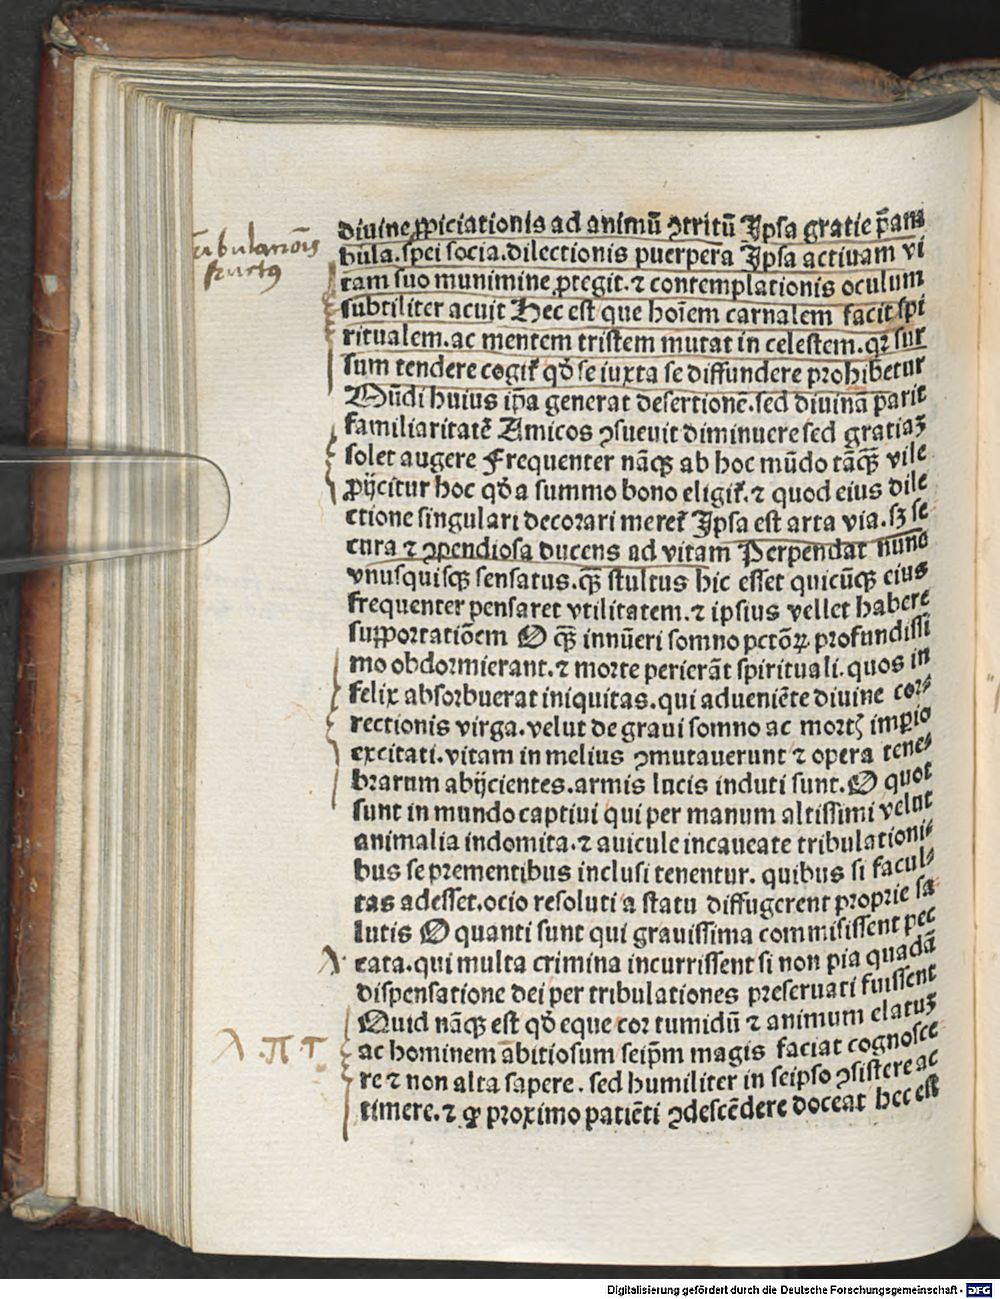 tribulationis
fructus
diuine ꝓpiciationis ad animū ꝯtritū Ipsa gratie p̄am
bula. spei socia. dilectionis puerpera Ipsa actiuam vi
tam suo munimine ꝓtegit. ⁊ contemplationis oculum
subtiliter acuit Hec est que hoīem carnalem facit spi
ritualem. ac mentem tristem mutat in celestem. qꝛ sur
sum tendere cogiť qđ se iuxta se diffundere prohibetur
Mūdi huius ip̄a generat desertionē. sed diuinā parit
familiaritatē Amicos ꝯsueuit diminuere sed gratiaꝫ
solet augere Frequenter nāqꝫ ab hoc mūdo tāqꝫ̄ vile
ꝓijcitur hoc qđ a summo bono eligiť. ⁊ quod eius dile
ctione singulari decorari mereť Ipsa est arta via. sꝫ se
cura ⁊ ꝯpendiosa ducens ad vitam Perpendat nunc
vnusquisqꝫ sensatus. qꝫ̄ stultus hic esset quicūqꝫ eius
frequenter pensaret vtilitatem. ⁊ ipsius vellet habere
supportatiōem O qꝫ̄ innūeri somno pctōꝝ profundissi
mo obdormierant. ⁊ morte perierāt spirituali. quos in
felix absorbuerat iniquitas. qui adueniēte diuine cor⸗
rectionis virga. velut de graui somno ac mortꝭ imꝑio
excitati. vitam in melius ꝯmutauerunt ⁊ opera tene⸗
brarum abijcientes. armis lucis induti sunt. O quot
sunt in mundo captiui qui per manum altissimi velut
animalia indomita. ⁊ auicule incaueate tribulationi⸗
bus se prementibus inclusi tenentur. quibus si facul⸗
tas adesset. ocio resoluti a statu diffugerent proprie sa
lutis O quanti sunt qui grauissima commisissent pec
λ· cata. qui multa crimina incurrissent si non pia quadā
dispensatione dei per tribulationes preseruati fuissent
Quid nāqꝫ est qđ eque cor tumidū ⁊ animum elatuꝫ
λ · π · τ ac hominem ābitiosum seip̄m magis faciat cognosce
re ⁊ non alta sapere. sed humiliter in seipso ꝯsistere ac
timere. ⁊ ꝙ proximo patiēti ꝯdescēdere doceat hec est
Digitalisierung gefördert durch die Deutsche Forschungsgemeinschaft - DFG